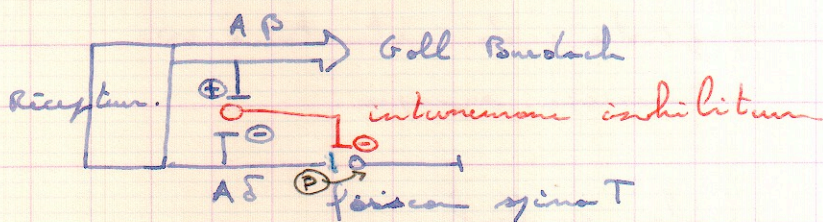 Aβ
Goll Burdach
Récepteur.
+
interneurone inhibiteur
-
-
P
Aδ
faisceau spino T